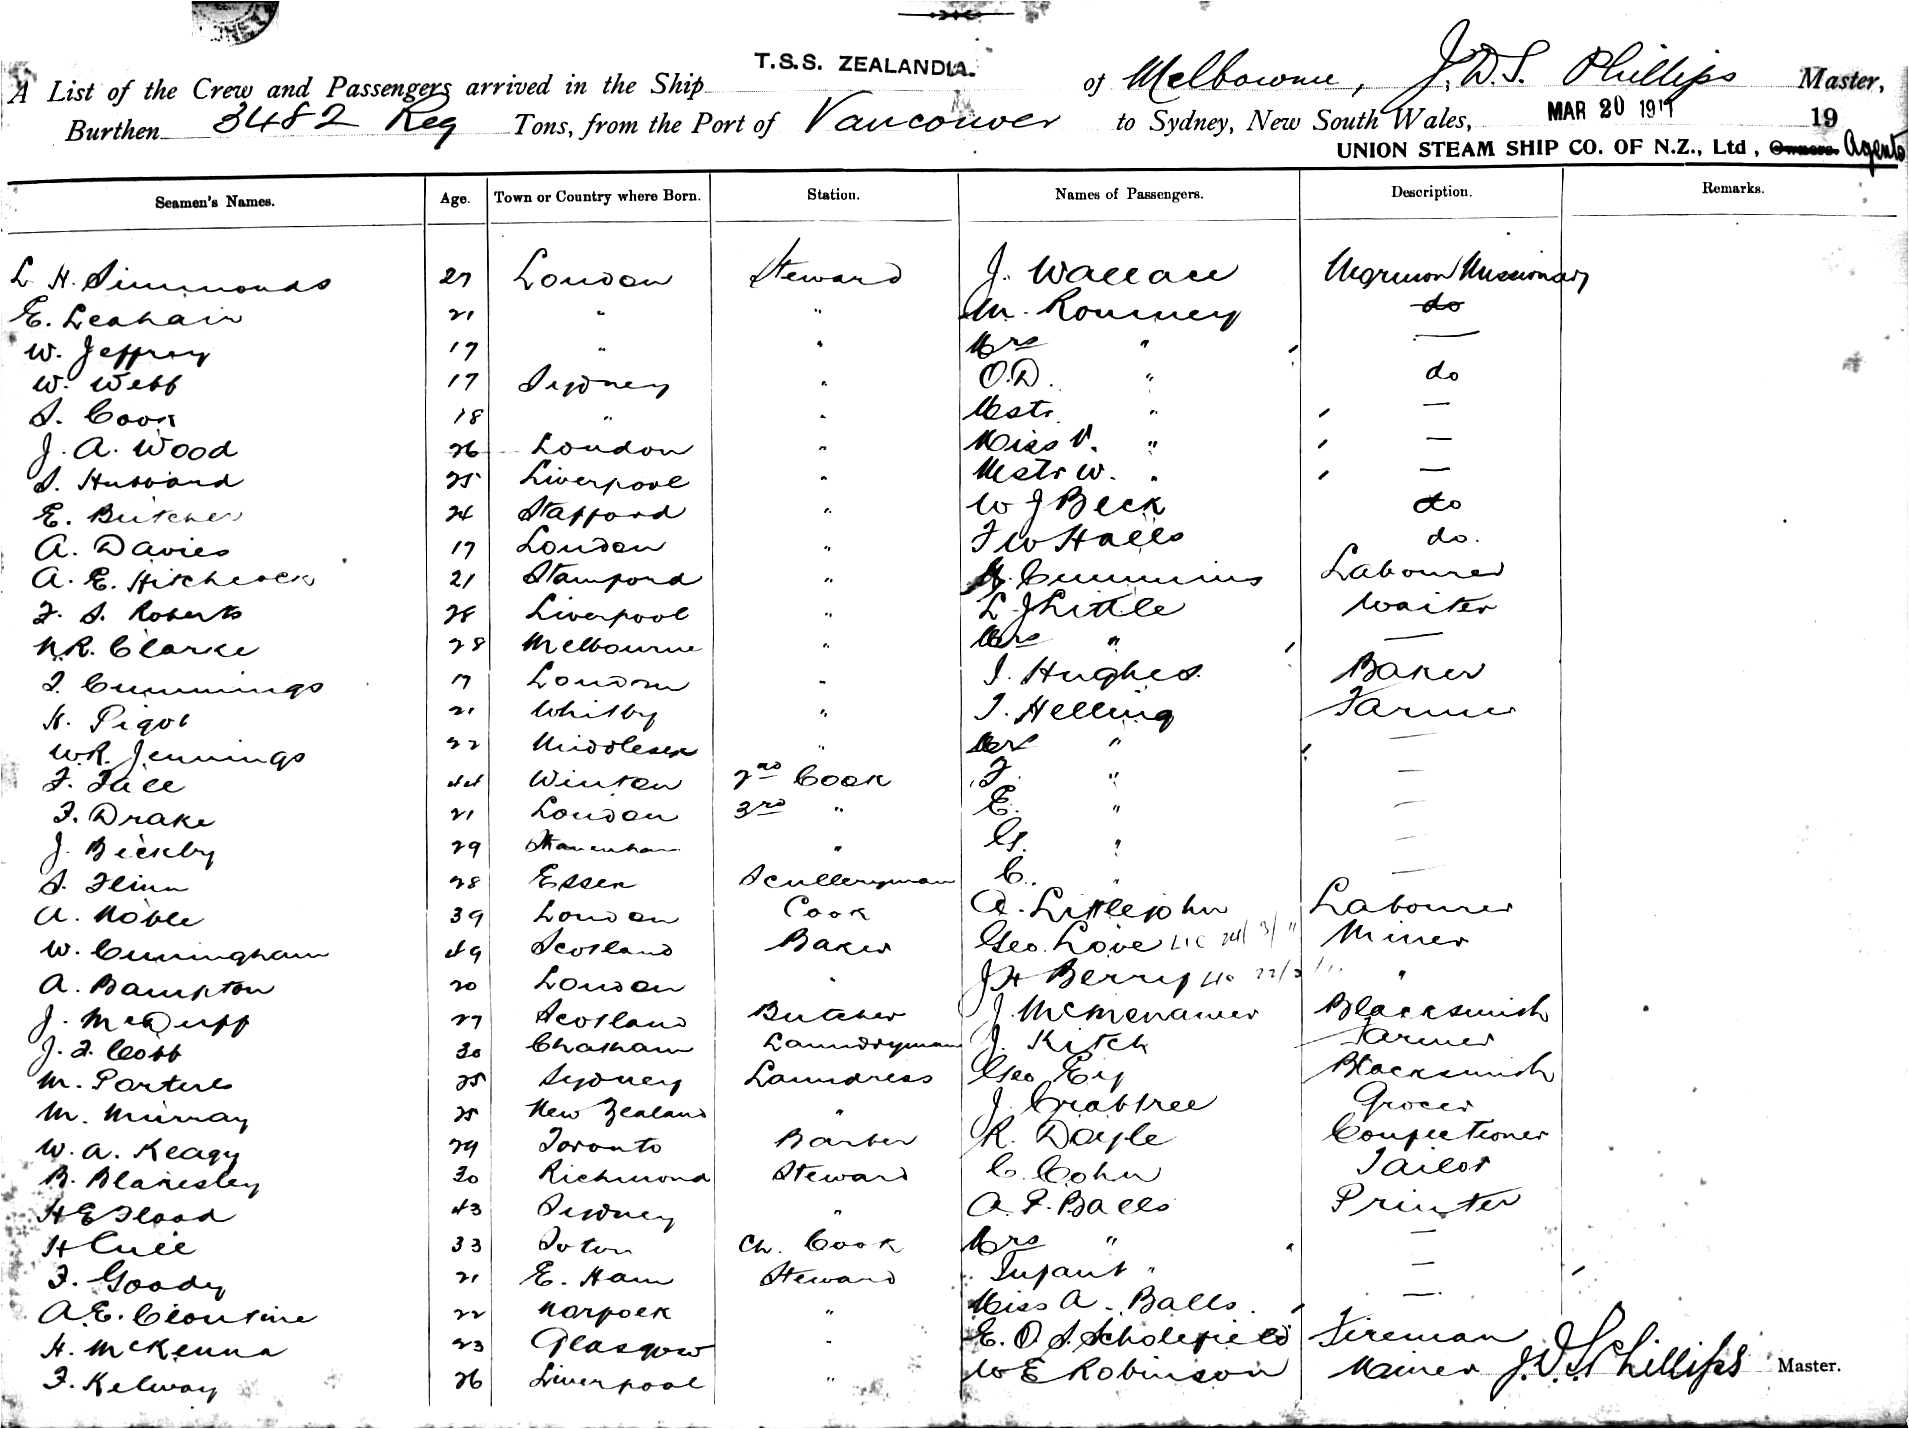 T.S.S. ZEALANDIA.
A List of the Crew and Passengers arrived in the Ship of Melbourne, J.D.S. Phillips Master,
Burthen 3482 Reg Tons, from the Port of Vancouver to Sydney, New South Wales, MAR 20 1911 19
UNION STEAM SHIP CO. OF N.Z., Ltd, Owners. Agents
Seamen's Names. Age. Town or Country where Born. Station. Names of Passengers. Description. Remarks.
L. H. Simmonds 27 London Steward J. Wallace Missionary
E. Leahair 21 " " M. Romney do
W. Jeffroy 17 " " Mrs " —
W. Webb 17 Sydney " O.D. " do
S. Cook 18 " " Mstr. " —
J. A. Wood 26 London " Miss V. " —
S. Hubbard 25 Liverpool " Mstr W. " —
E. Butcher 24 Stafford " W J Beck do
A. Davies 17 London " F W Halls do.
A. E. Hitchcock 21 Stamford " Cummins Labourer
F. S. Roberts 28 Liverpool " L. J Little Waiter
N.R. Clarke 28 Melbourne " Mrs " —
J. Cummings 17 London " J. Hughes. Baker
H. Pigot 21 Whitby " J. Helling Farmer
W.R. Jennings 22 Middlesex " Mrs " —
F. Tall 44 Winton 2nd Cook F. " —
F. Drake 21 London 3rd " E. " —
J. Bickby 29 " G. " —
S. Flinn 28 Essex Sculleryman C. " —
A. Noble 39 London Cook A. Littlejohn Labourer
W. Cunningham 49 Scotland Baker Geo. Love 24/3/11 Miner
A. Bampton 20 London " J H Berry "
J. McDuff 27 Scotland Butcher J. McMenamer Blacksmith
J. F. Cobb 30 Chatham Laundryman J. Kitch Farmer
M. Porteus 25 Sydney Laundress Geo Ey Blacksmith
M. Murray 25 New Zealand " J. Crabtree Grocer
W. A. Keagy 29 Toronto Barber R. Doyle Confectioner
B. Blakesley 30 Richmond Steward C. Cohn Tailor
H E Flood 43 Sydney " A. F. Balls Printer
H Cull 33 Toton Ch. Cook Mrs " —
F. Goody 21 E. Ham Steward Infant " —
A. E. Cloutine 22 Norfolk " Miss A. Balls. —
H. McKenna 23 Glasgow " E. O. S. Scholefield Fireman
F. Kelway 26 Liverpool " W E Robinson Miner J.D.S. Phillips Master.